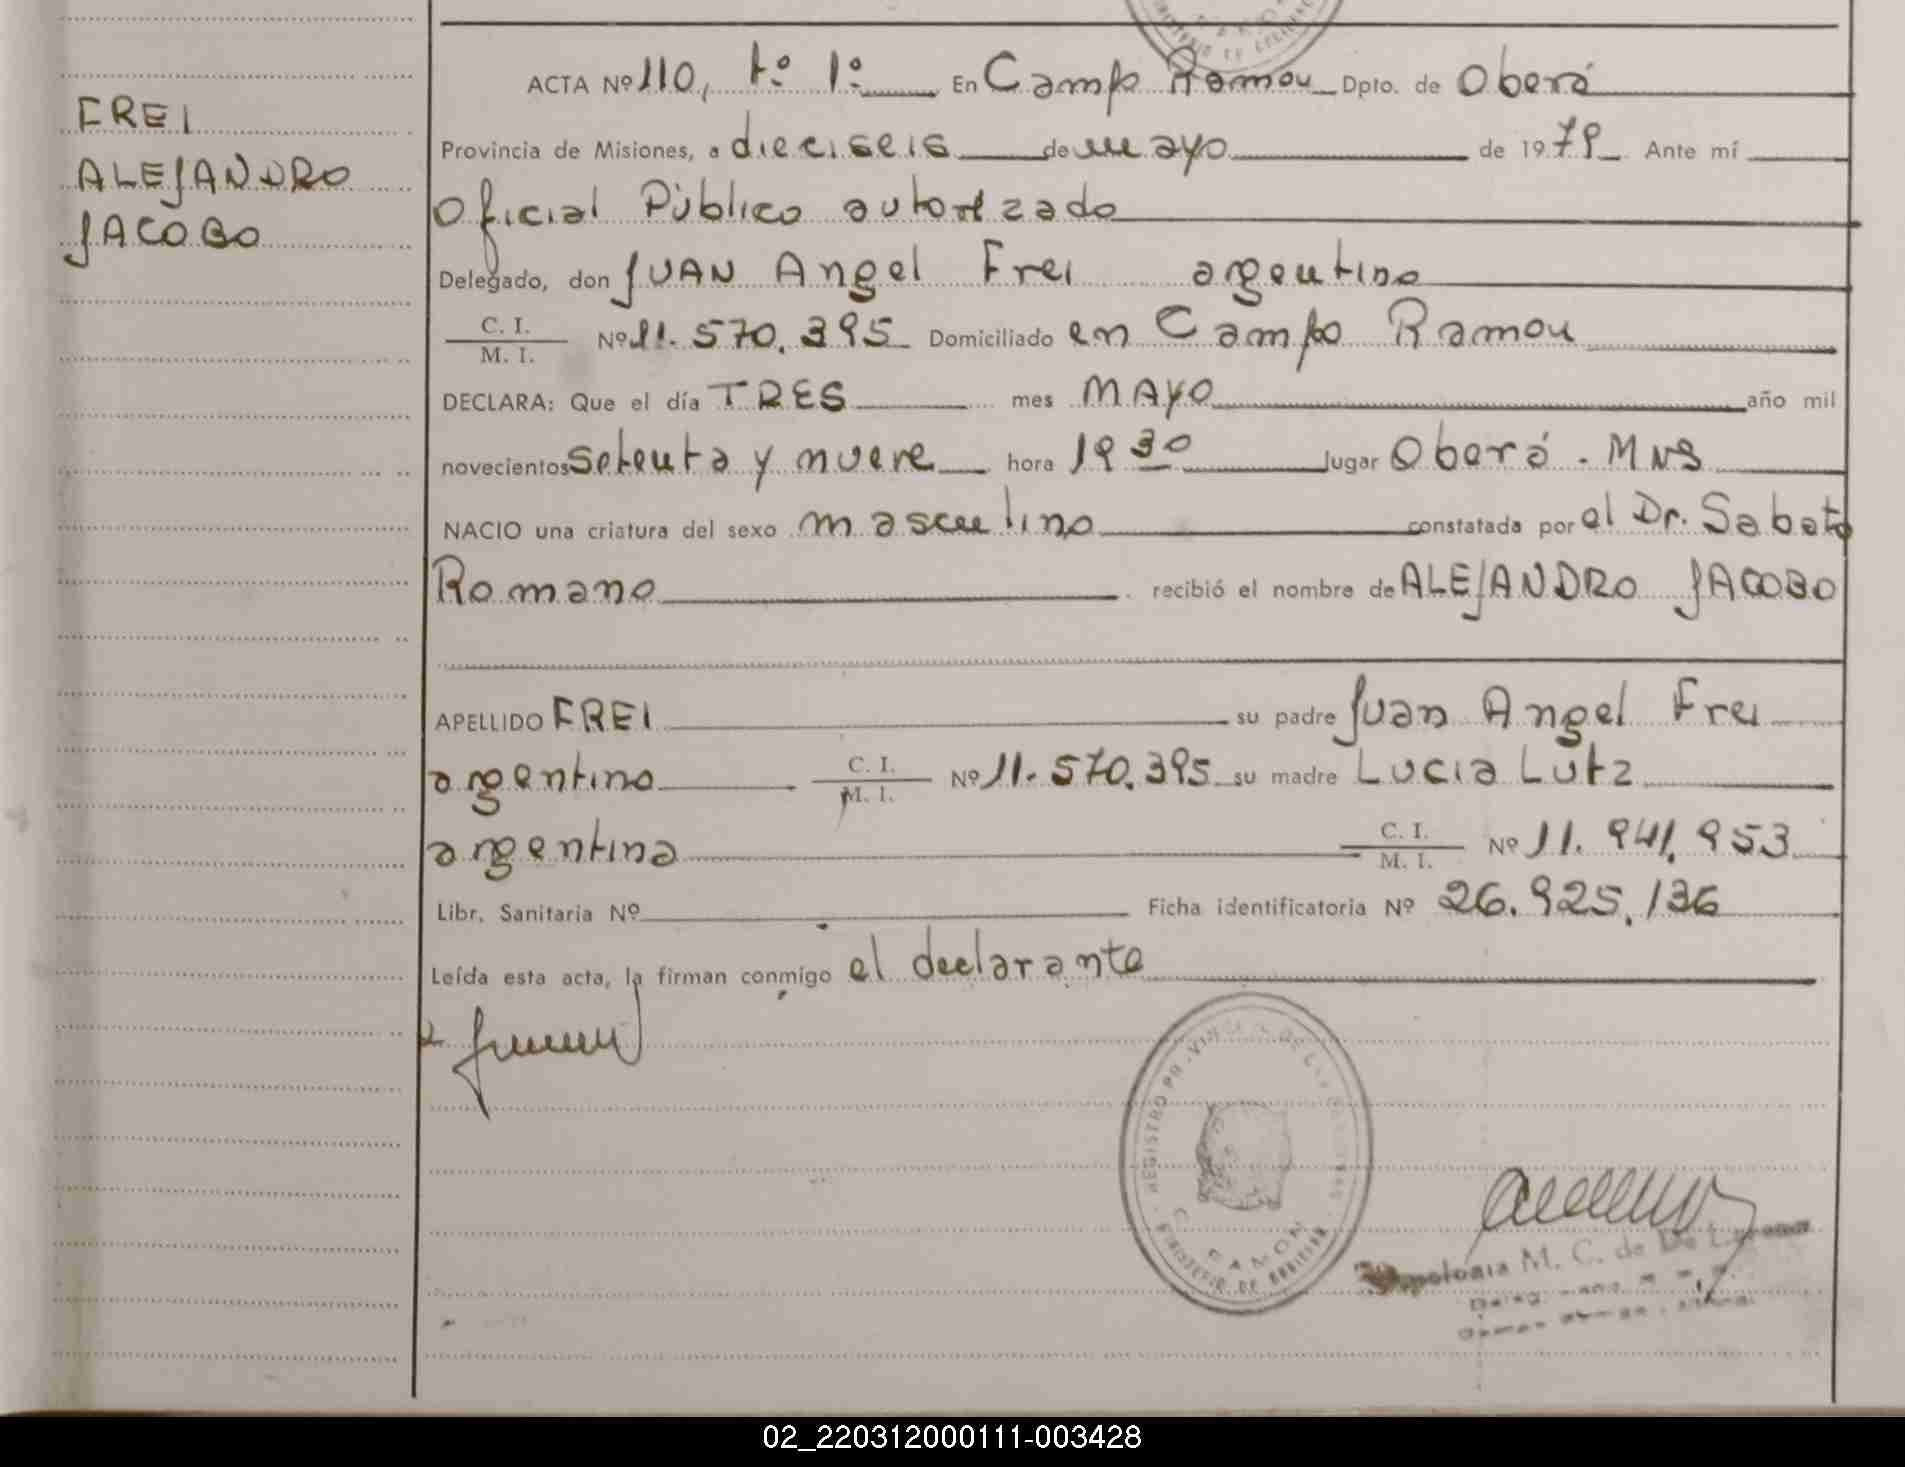 FREI
ALEJANDRO
JACOBO
ACTA Nº 110, tº 1º En Campo Ramon Dpto. de Oberá
Provincia de Misiones, a dieciseis de mayo de 1979 Ante mí
Oficial Público autorizado
Delegado, don JUAN Angel Frei argentino
C. I.
M. I. Nº 11.570.395 Domiciliado en Campo Ramon
DECLARA: Que el día TRES mes MAYO año mil
novecientos setenta y nueve hora 19 30 lugar Oberá. MNS
NACIO una criatura del sexo masculino constatada por el Dr. Sabato
Romano recibió el nombre de ALEJANDRO JACOBO
APELLIDO FREI su padre Juan Angel Frei
argentino C. I. M. I. Nº 11.570.395 su madre Lucia Lutz
argentina C. I. M. I. Nº 11.941.953
Libr. Sanitaria Nº Ficha identificatoria Nº 26.925.136
Leída esta acta, la firman conmigo el declarante
REGISTRO DE LAS
RAMON
MINISTERIO DE GOBIERNO
M. C. de
02_220312000111-003428